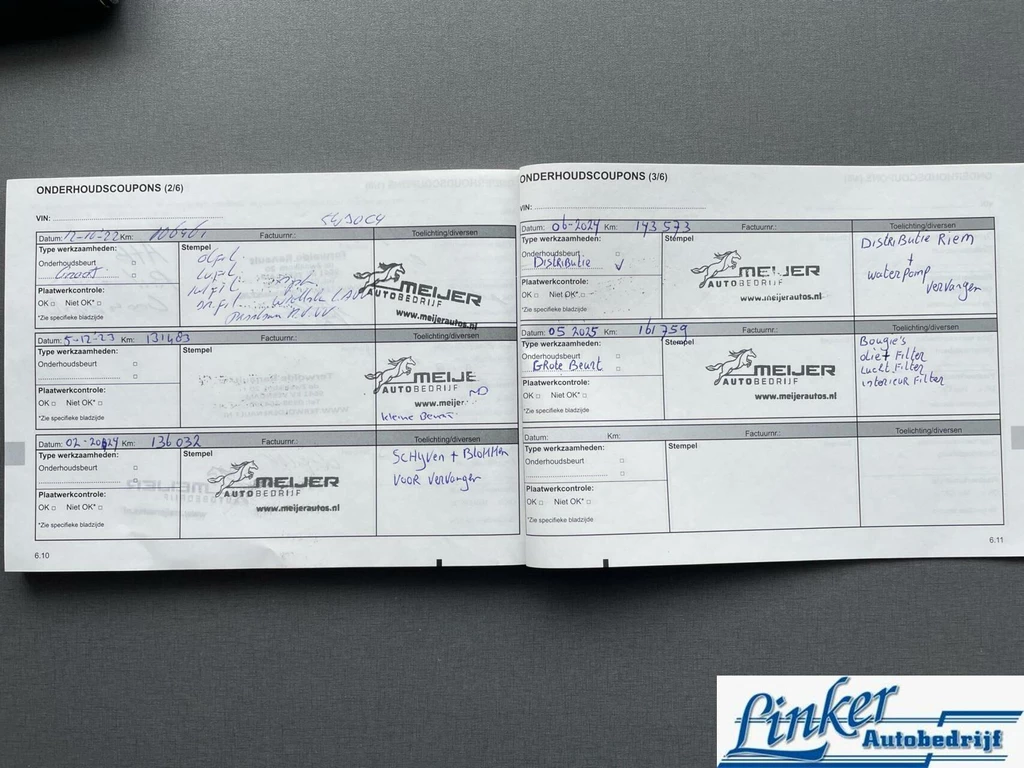 ONDERHOUDSCOUPONS (2/6)
VIN:
Datum: 12-10-22 Km: Factuurnr.: Toelichting/diversen
Type werkzaamheden: Stempel
Onderhoudsbeurt
Groot
Plaatwerkcontrole:
OK Niet OK*
*Zie specifieke bladzijde
MEIJER
AUTOBEDRIJF
www.meijerautos.nl
Datum: 5-12-23 Km: 131483 Factuurnr.: Toelichting/diversen
Type werkzaamheden: Stempel
Onderhoudsbeurt
Plaatwerkcontrole:
OK Niet OK*
*Zie specifieke bladzijde
MEIJE
AUTOBEDRIJF
www.meijer
kleine Beurt
Datum: 02-2024 Km: 136032 Factuurnr.: Toelichting/diversen
Type werkzaamheden: Stempel
Onderhoudsbeurt
Plaatwerkcontrole:
OK Niet OK*
*Zie specifieke bladzijde
MEIJER
AUTOBEDRIJF
www.meijerautos.nl
SCHijven + BloKKen
VOOR Vervangen
6.10
ONDERHOUDSCOUPONS (3/6)
VIN:
Datum: 06-2024 Km: 143573 Factuurnr.: Toelichting/diversen
Type werkzaamheden: Stempel
Onderhoudsbeurt
DistRiButie ✓
Plaatwerkcontrole:
OK Niet OK*
*Zie specifieke bladzijde
MEIJER
AUTOBEDRIJF
www.meijerautos.nl
DistRiButie Riem
+
waterpomp
vervangen
Datum: 05 2025 Km: 161759 Factuurnr.: Toelichting/diversen
Type werkzaamheden: Stempel
Onderhoudsbeurt
GRote Beurt
Plaatwerkcontrole:
OK Niet OK*
*Zie specifieke bladzijde
MEIJER
AUTOBEDRIJF
www.meijerautos.nl
Bougie's
olie+ Filter
Lucht Filter
interieur Filter
Datum: Km: Factuurnr.: Toelichting/diversen
Type werkzaamheden: Stempel
Onderhoudsbeurt
Plaatwerkcontrole:
OK Niet OK*
*Zie specifieke bladzijde
6.11
Linker
Autobedrijf